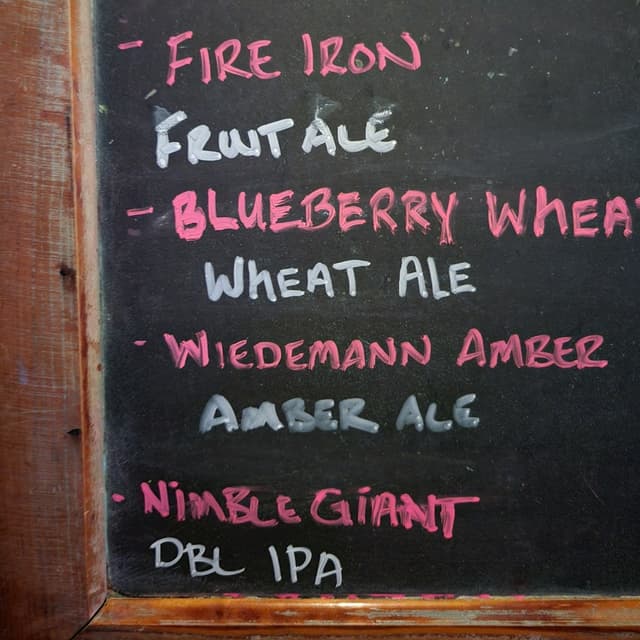 - FIRE IRON
FRUIT ALE
- BLUEBERRY WHEA
WHEAT ALE
- WIEDEMANN AMBER
AMBER ALE
- NIMBLE GIANT
DBL IPA